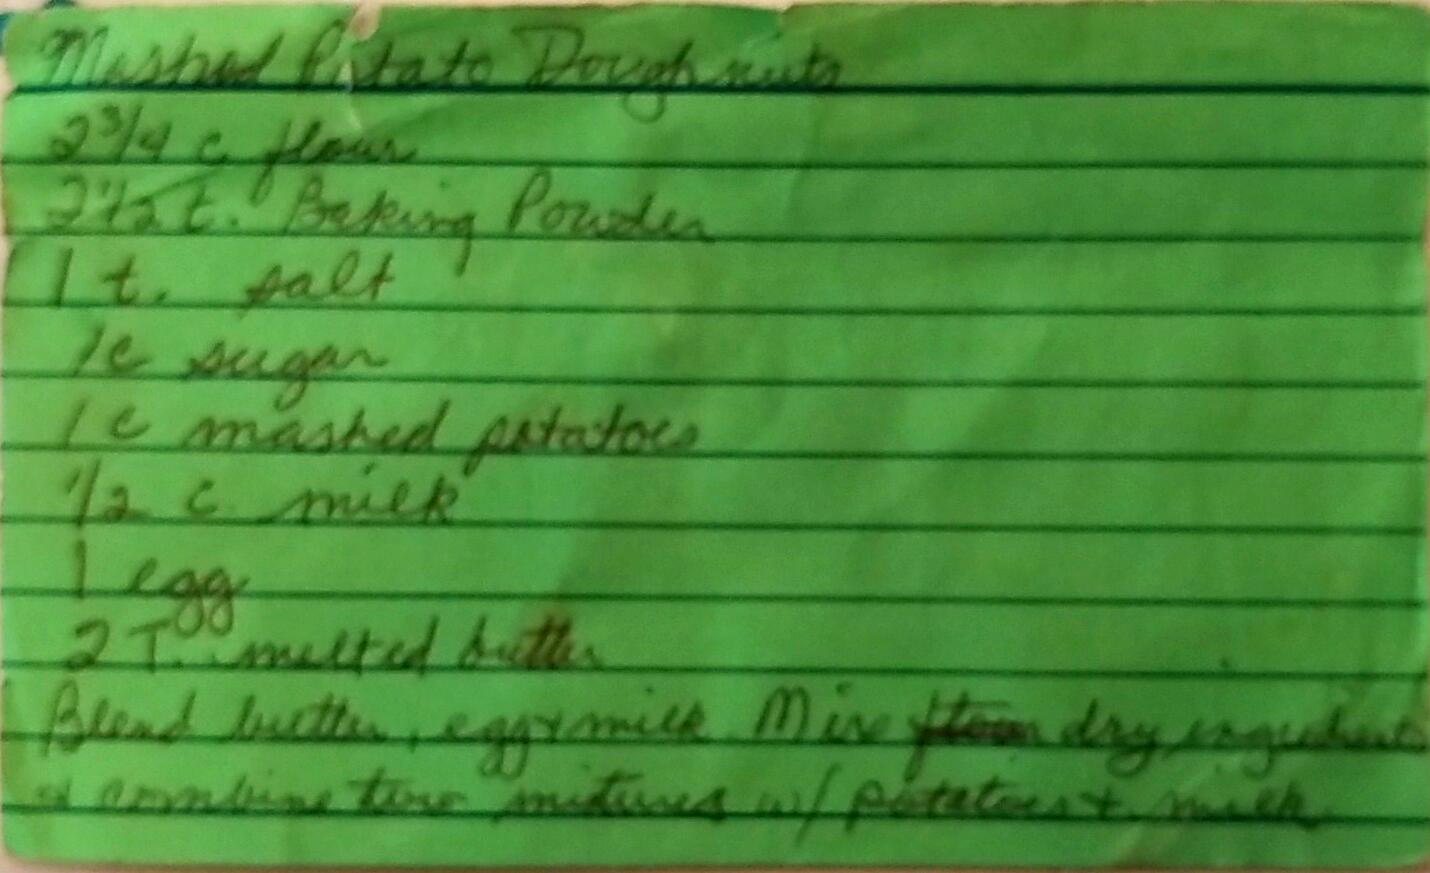 Mashed Potato Doughnuts
2 3/4 c flour
2 1/2 t. Baking Powder
1 t. salt
1 c sugar
1 c mashed potatoes
1/2 c. milk
1 egg
2 T. melted butter
Blend butter, egg + milk Mix flour dry ingredients
+ combine two mixtures w/ potatoes + milk